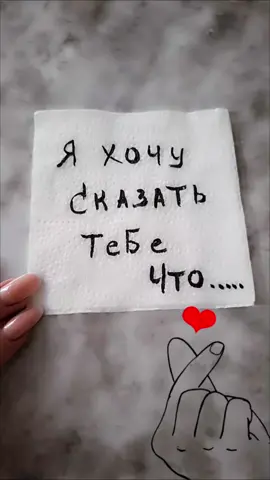 Я ХОЧУ
СКАЗАТЬ
ТеБе
ЧТО.....